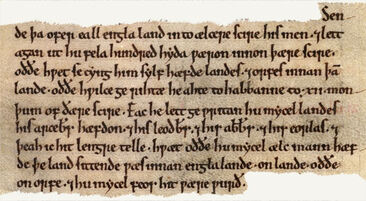 Sen
de þa ofer eall engla land into ælcere scire his men. ⁊ lett
agan ut hu fela hundred hyda ƿæron innon þære scire.
oððe hƿet se cyng him sylf hæfde landes. ⁊ orfes innan þā
lande. oððe hƿilce gerihtæ he ahte to habbanne to .xii. mon
þum of ðære scire. Eac he lett geƿritan hu mycel landes
his arceb̄ hæfdon. ⁊ his leodb̄. ⁊ his abb̄. ⁊ his eorlas. ⁊
þeah ic hit lengre telle. hƿæt oððe hu mycel ælc mann hæf
de þe land sittende ƿæs innan englalande. on lande. oððe
on orfe. ⁊ hu mycel feoh hit ƿære ƿurð.